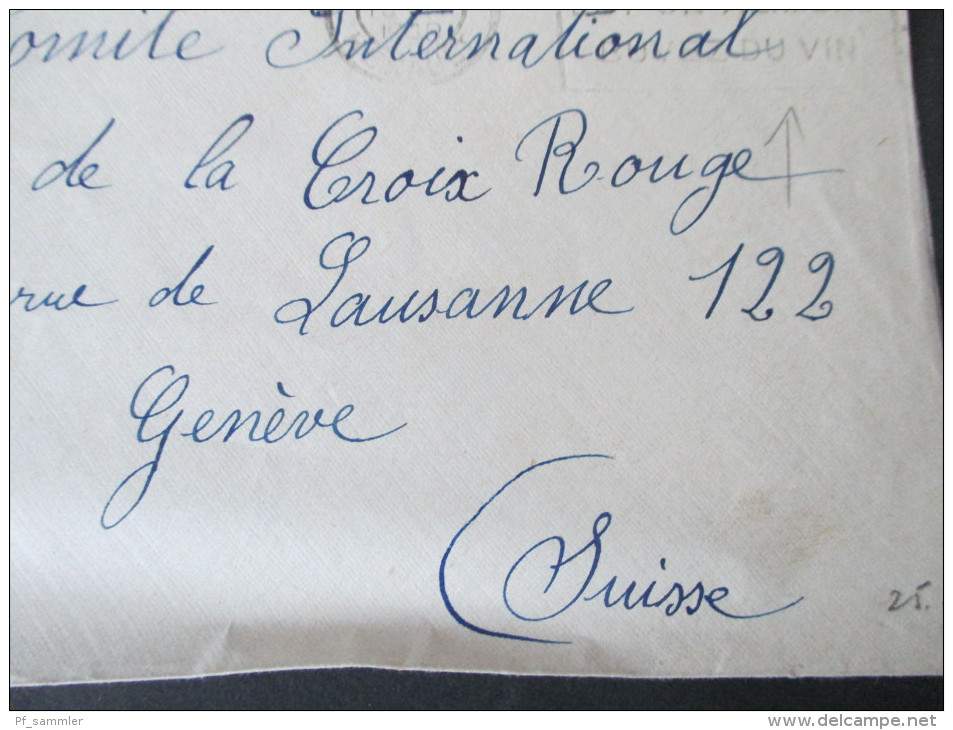 omité International
DU VIN
de la Croix Rouge
rue de Lausanne 122
Genève
(Suisse
25.
Pf_sammler
www.delcampe.net